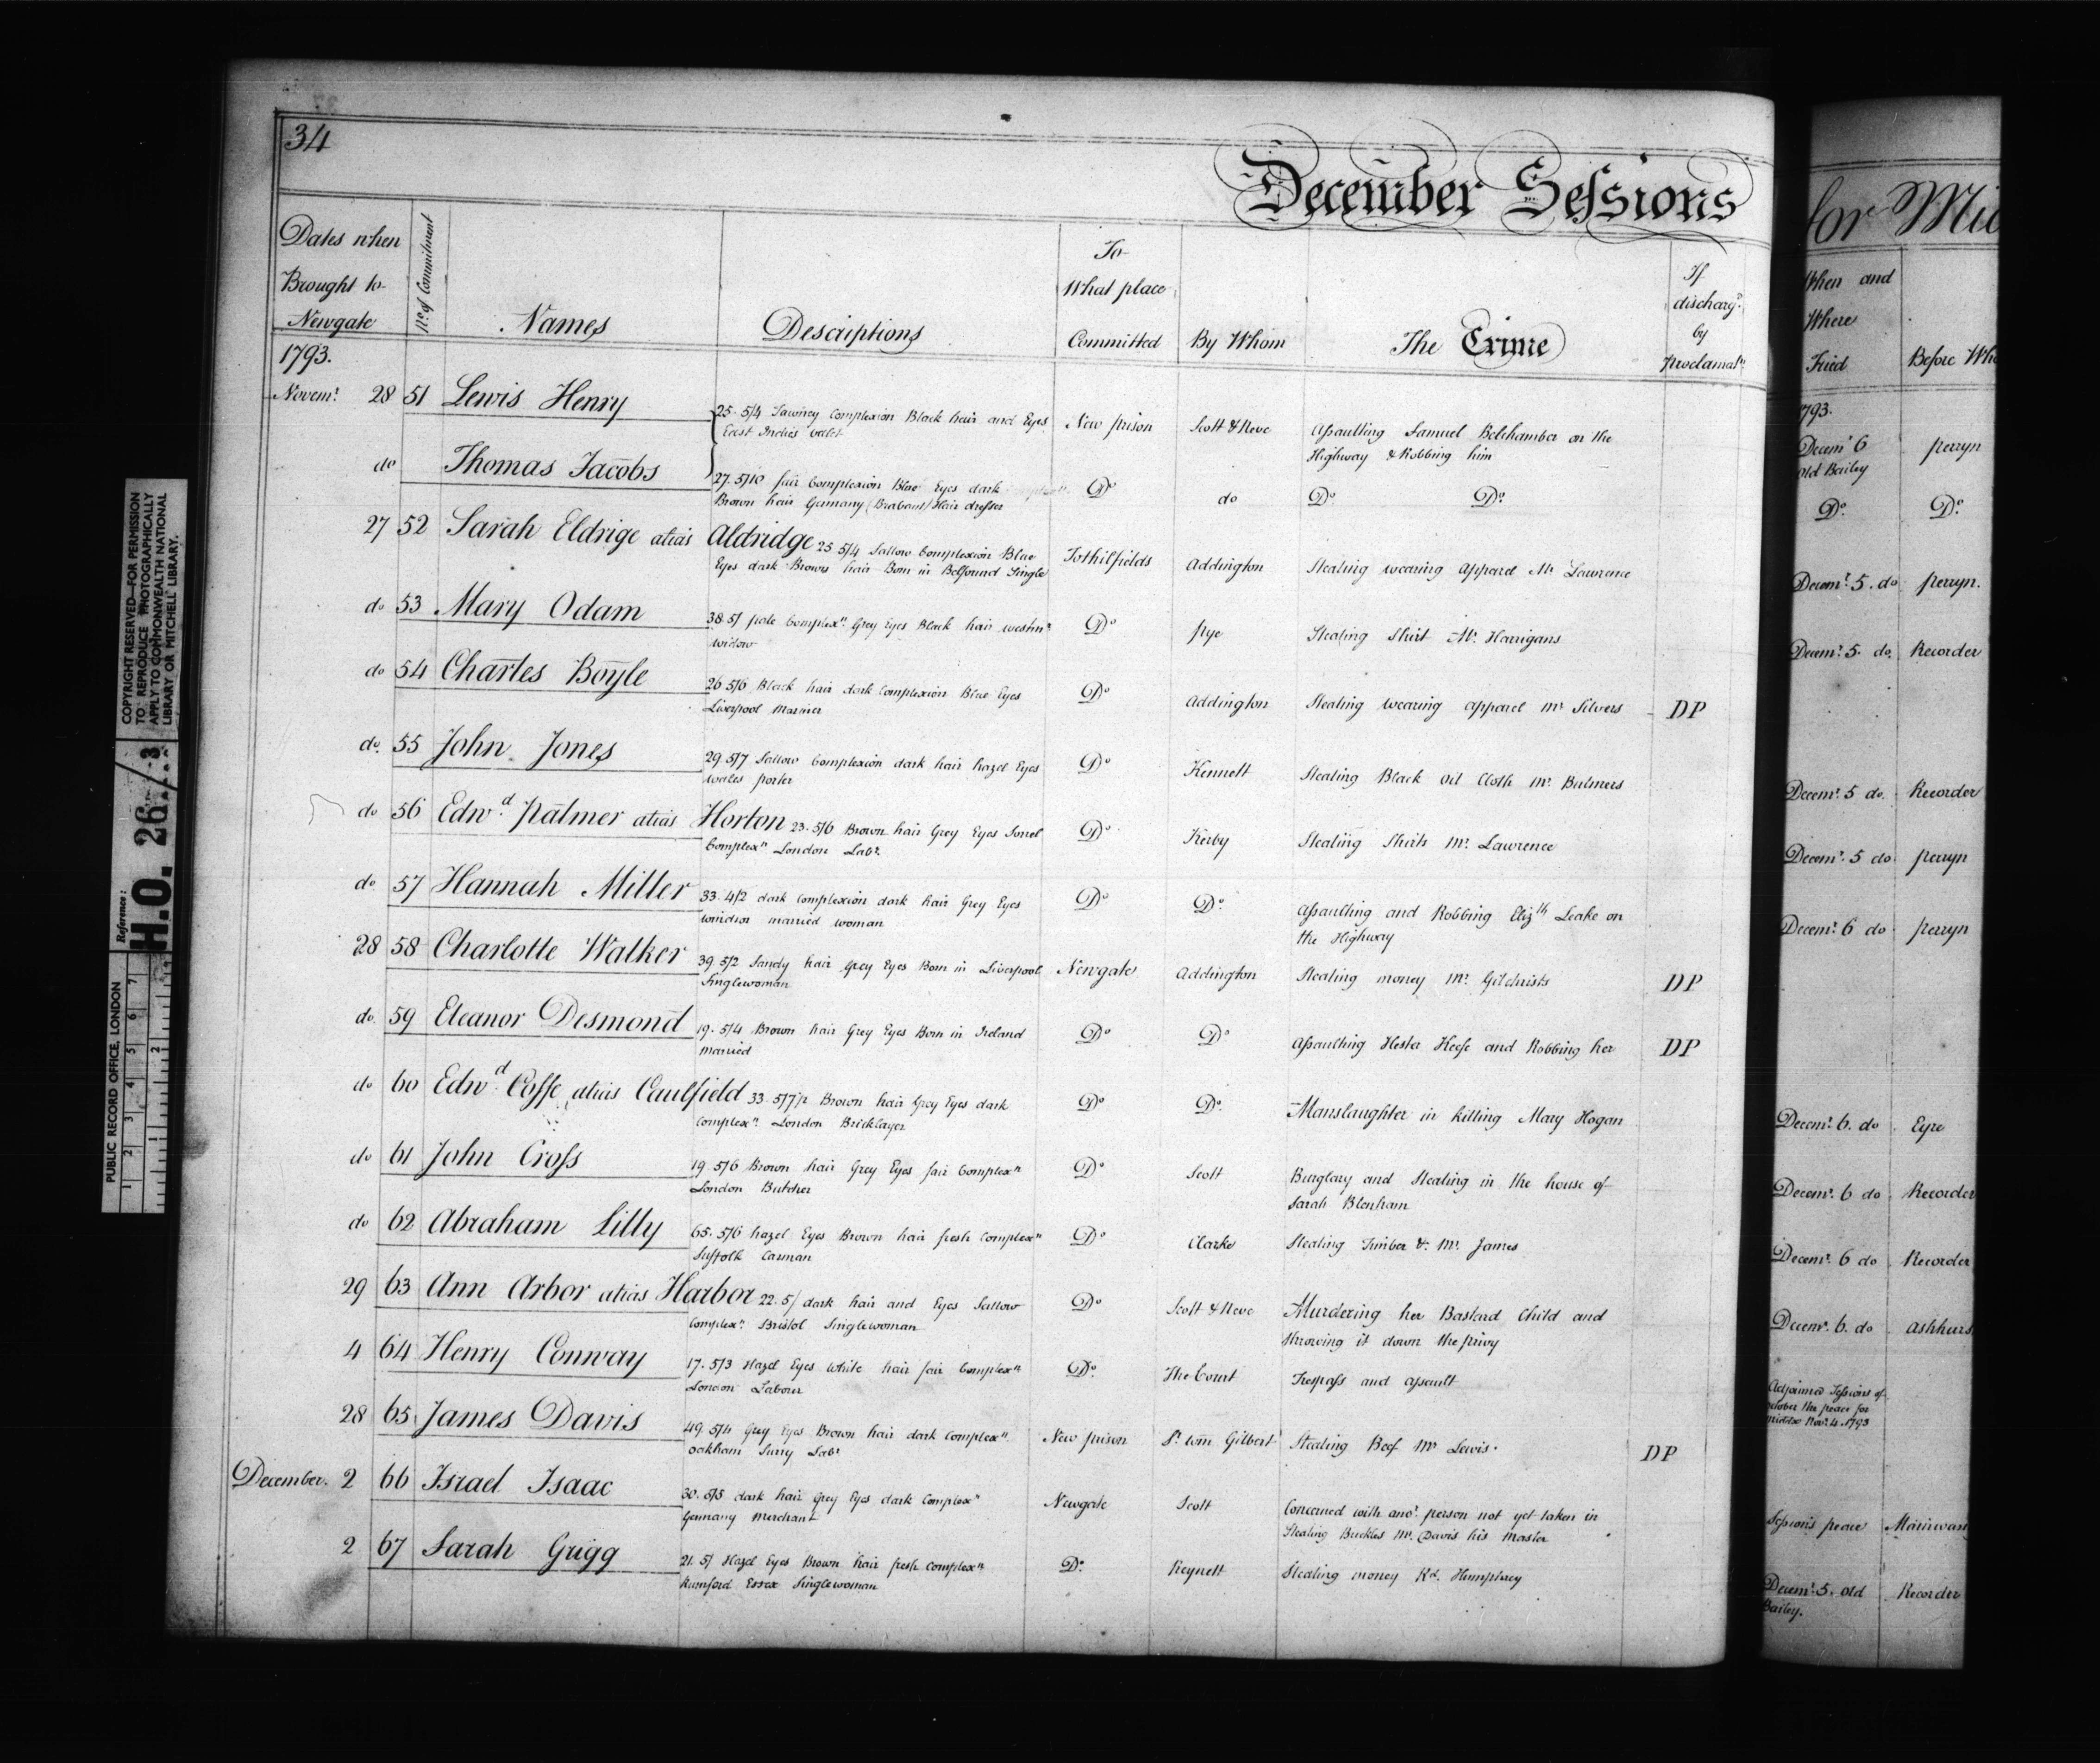 34
December Sessions
Dates when
Brought to
Newgate
No. of Commitment
Names
Descriptions
To
What place
Committed
By Whom
The Crime
If
discharg.d
by
proclamat.n
1793.
Novem.r 28 51 Lewis Henry 25. 5/4 Tawney Complexion Black hair and Eyes New prison Scott & Neve Assaulting Samuel Belchamber on the
East Indies valet Highway & Robbing him
do Thomas Jacobs 27. 5/10 fair Complexion Blue Eyes dark Do do Do. Do.
Brown hair Germany (Brabant) Hair dresser
27 52 Sarah Eldrige alias Aldridge 25 5/4 Sallow Complexion Blue Tothilfields Addington Stealing wearing apparel Mr. Lawrence
Eyes dark Brown hair Born in Single
do 53 Mary Odam 38 5/ pale Complex.n Grey Eyes Black hair westm.r Do pye Stealing Shirt Mr. Harrigans
widow
do 54 Charles Boyle 26 5/6 Black hair dark Complexion Blue Eyes Do Addington Stealing wearing apparel Mr Silvers DP
Liverpool Mariner
do. 55 John Jones 29 5/7 Sallow Complexion dark hair hazel Eyes Do Kennett Stealing Black Oil Cloth Mr. Bulmers
Wales porter
do 56 Edw.d Palmer alias Horton 23. 5/6 Brown hair Grey Eyes Do Kerby Stealing Shirts Mr. Lawrence
Complex.n London Lab.r
do 57 Hannah Miller 33. 4/2 dark Complexion dark hair Grey Eyes Do Do. Assaulting and Robbing Eliz.th Leake on
windsor married woman the Highway
28 58 Charlotte Walker 39 5/2 Sandy hair Grey Eyes Born in Liverpool Newgate Addington Stealing money Mr. Gilchrists DP
Singlewoman
do. 59 Eleanor Desmond 19. 5/4 Brown hair Grey Eyes Born in Ireland Do Do Assaulting Hester Keefe and Robbing her DP
Married
do 60 Edw.d Cosse alias Caulfield 33. 5/7½ Brown hair Grey Eyes dark Do Do. Manslaughter in killing Mary Hogan
Complex.n London Bricklayer
do 61 John Cross 19 5/6 Brown hair Grey Eyes fair Complex.n Do Scott Burglary and Stealing in the house of
London Butcher Sarah Blenham
do 62 Abraham Lilly 65. 5/6 hazel Eyes Brown hair fresh Complex.n Do Clarke Stealing Timber &c. Mr. James
Suffolk Carman
29 63 Ann Arbor alias Harbor 22. 5/ dark hair and Eyes Sallow Do Scott & Neve Murdering her Bastard Child and
Complex.n Bristol Singlewoman throwing it down the privy
4 64 Henry Conway 17. 5/3 Hazel Eyes white hair fair Complex.n Do. The Court Trespass and assault
London Labour
28 65 James Davis 49. 5/4 Grey Eyes Brown hair dark Complex.n New prison Sr. Wm Gilbert Stealing Beef Mr Lewis. DP
Oakham Surry Lab.r
December. 2 66 Israel Isaac 30. 5/5 dark hair Grey Eyes dark Complex.n Newgate Scott Concerned with ano.r person not yet taken in
Germany Merchant Stealing Buckles Mr. Davis his Master
2 67 Sarah Grigg 21. 5/ Hazel Eyes Brown hair fresh Complex.n Do. Reynett Stealing money Rd. Humphrey
Rumford Essex Singlewoman
for Mid
When and
Where
Tried
Before Who
1793.
Decem.r 6 perryn
Old Bailey
Do. Do.
Decem.r 5. do perryn.
Decem.r 5. do. Recorder
Decem.r 5 do. Recorder
Decem.r 5 do. perryn
Decem.r 6 do perryn
Decem.r 6. do Eyre
Decem.r 6 do Recorder
Decem.r 6 do Recorder
Decem.r 6. do ashhurs
Adjourned Sessions of
October the peace for
Middx Nov.r 4. 1793
Sessions peace Mainwar
Decem.r 5. Old Recorder
Bailey.
COPYRIGHT RESERVED—FOR PERMISSION
TO REPRODUCE PHOTOGRAPHICALLY
APPLY TO COMMONWEALTH NATIONAL
LIBRARY OR MITCHELL LIBRARY.
Reference:
H.O. 26/3
PUBLIC RECORD OFFICE, LONDON
1 2 3 4 5 6 7
1 2